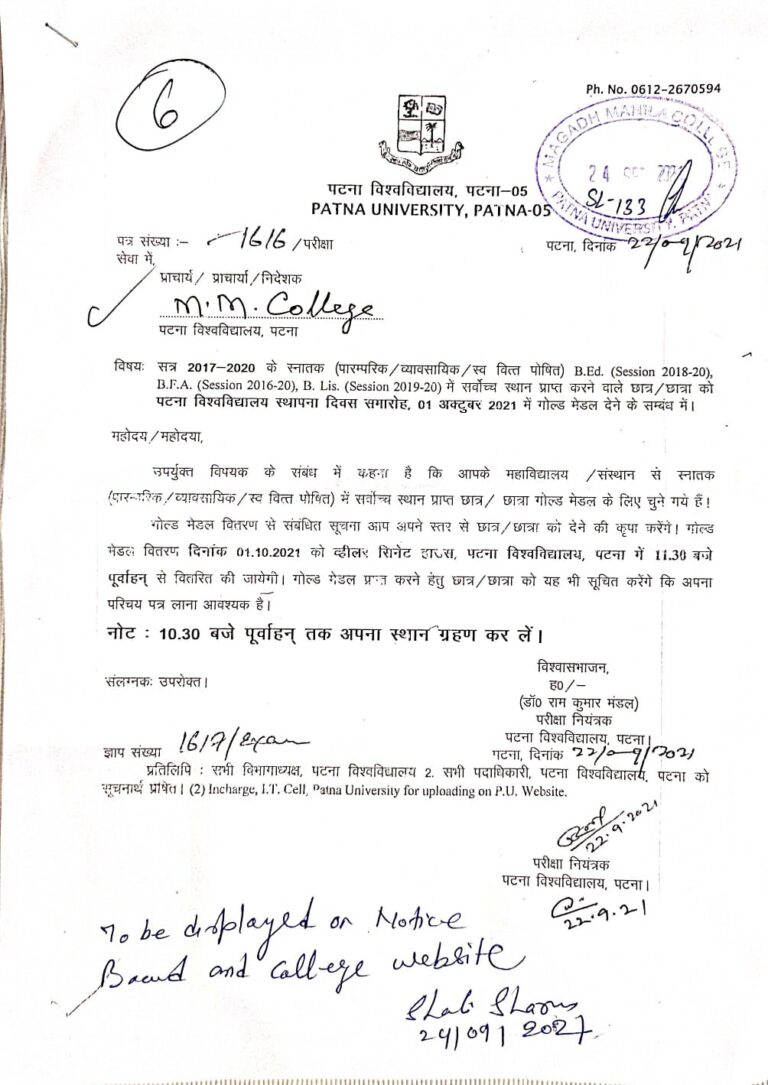 6
Ph. No. 0612-2670594
MAGADH MAHILA COLLEGE
24 SEP 2021
SL-133
PATNA UNIVERSITY, PATNA
पटना विश्वविद्यालय, पटना–05
PATNA UNIVERSITY, PATNA-05
पत्र संख्या :– 1616 /परीक्षा
पटना, दिनांक 22/09/2021
सेवा में,
प्राचार्य/ प्राचार्या/निदेशक
M.M. College
पटना विश्वविद्यालय, पटना
विषयः सत्र 2017–2020 के स्नातक (पारम्परिक/व्यावसायिक/स्व वित्त पोषित) B.Ed. (Session 2018-20),
B.F.A. (Session 2016-20), B. Lis. (Session 2019-20) में सर्वोच्च स्थान प्राप्त करने वाले छात्र/छात्रा को
पटना विश्वविद्यालय स्थापना दिवस समारोह, 01 अक्टुबर 2021 में गोल्ड मेडल देने के सम्बंध में।
महोदय/महोदया,
उपर्युक्त विषयक के संबंध में कहना है कि आपके महाविद्यालय /संस्थान से स्नातक
(पारम्परिक/व्यावसायिक/स्व वित्त पोषित) में सर्वोच्च स्थान प्राप्त छात्र/ छात्रा गोल्ड मेडल के लिए चुने गये हैं।
गोल्ड मेडल वितरण से संबंधित सूचना आप अपने स्तर से छात्र/छात्रा को देने की कृपा करेंगे। गोल्ड
मेडल वितरण दिनांक 01.10.2021 को व्हीलर सिनेट हाउस, पटना विश्वविद्यालय, पटना में 11.30 बजे
पूर्वाहन् से वितरित की जायेगी। गोल्ड मेडल प्राप्त करने हेतु छात्र/छात्रा को यह भी सूचित करेंगे कि अपना
परिचय पत्र लाना आवश्यक है।
नोट : 10.30 बजे पूर्वाहन् तक अपना स्थान ग्रहण कर लें।
विश्वासभाजन,
संलग्नकः उपरोक्त।
ह0/–
(डॉ0 राम कुमार मंडल)
परीक्षा नियंत्रक
पटना विश्वविद्यालय, पटना।
ज्ञाप संख्या 1617/Exam
पटना, दिनांक 22/09/2021
प्रतिलिपि : सभी विभागाध्यक्ष, पटना विश्वविद्यालय 2. सभी पदाधिकारी, पटना विश्वविद्यालय, पटना को
सूचनार्थ प्रेषित। (2) Incharge, I.T. Cell, Patna University for uploading on P.U. Website.
22.9.2021
परीक्षा नियंत्रक
पटना विश्वविद्यालय, पटना।
22.9.21
To be displayed on Notice
Board and College website
24/09/2021